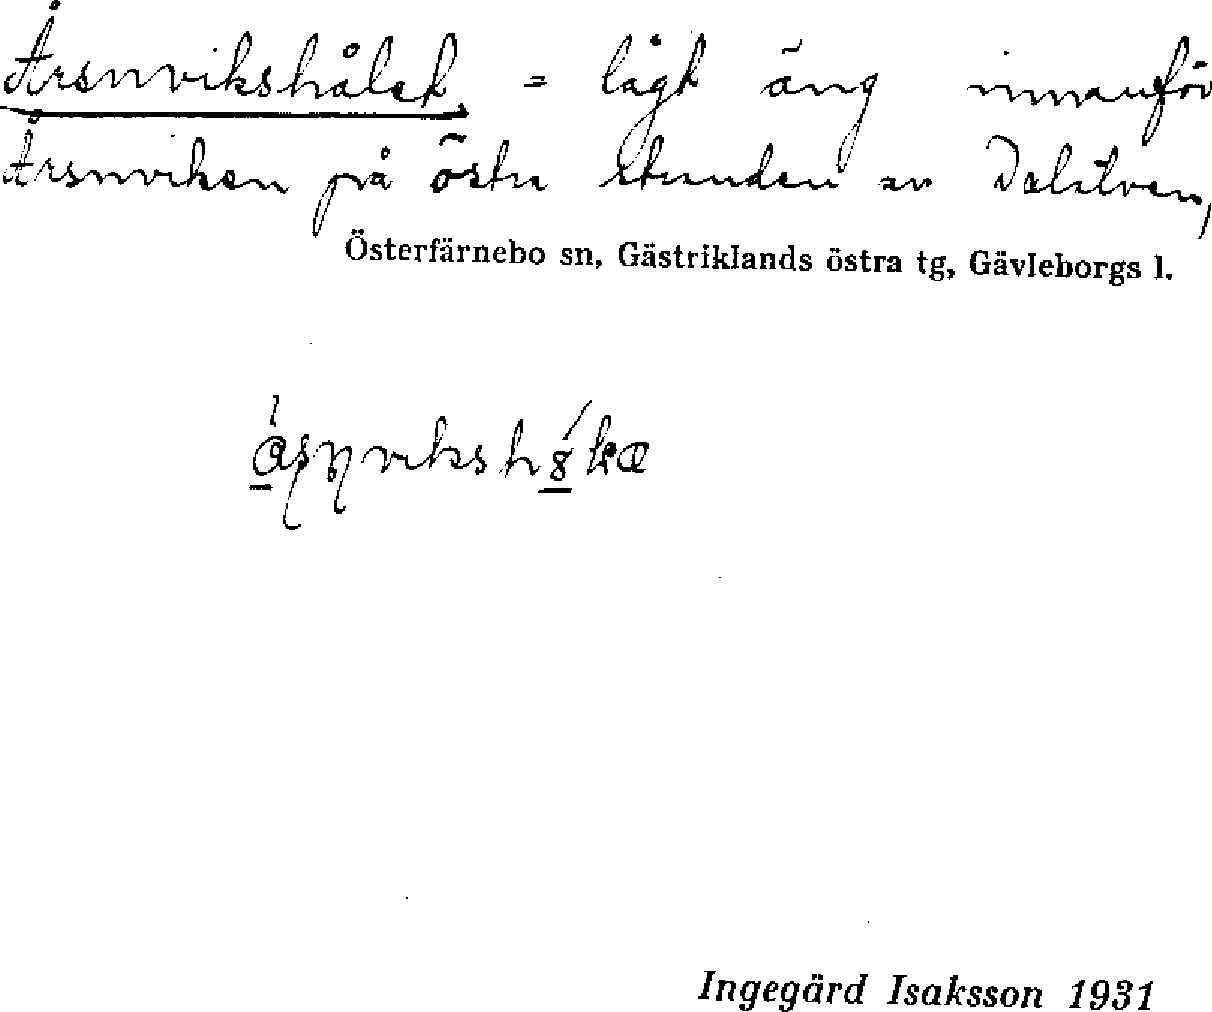 Årsnvikshålet = lågt äng innanför
Årsnviken på östra stranden av Dalälven,
Österfärnebo sn, Gästriklands östra tg, Gävleborgs l.
Ingegärd Isaksson 1931